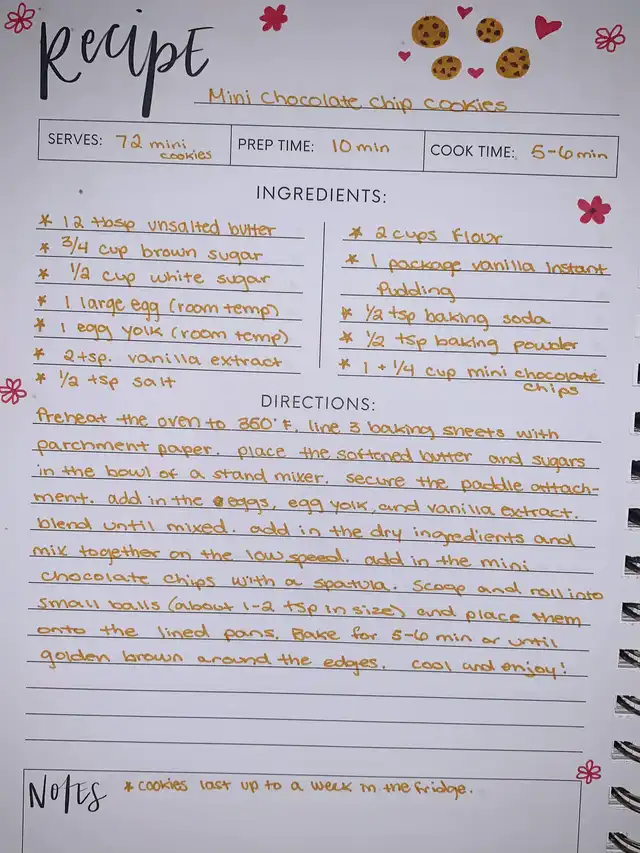 Recipe
Mini Chocolate Chip Cookies
SERVES: 72 mini cookies
PREP TIME: 10 min
COOK TIME: 5-6 min
INGREDIENTS:
* 12 tbsp unsalted butter
* 3/4 cup brown sugar
* 1/2 cup white sugar
* 1 large egg (room temp)
* 1 egg yolk (room temp)
* 2 tsp. vanilla extract
* 1/2 tsp salt
* 2 cups flour
* 1 package vanilla instant
pudding
* 1/2 tsp baking soda
* 1/2 tsp baking powder
* 1 + 1/4 cup mini chocolate
chips
DIRECTIONS:
Preheat the oven to 350°F. line 3 baking sheets with
parchment paper. place the softened butter and sugars
in the bowl of a stand mixer. secure the paddle attach-
ment. add in the eggs, egg yolk, and vanilla extract.
blend until mixed. add in the dry ingredients and
mix together on the low speed. add in the mini
chocolate chips with a spatula. scoop and roll into
small balls (about 1-2 tsp in size) and place them
onto the lined pans. Bake for 5-6 min or until
golden brown around the edges. cool and enjoy!
NOTES
* cookies last up to a week in the fridge.